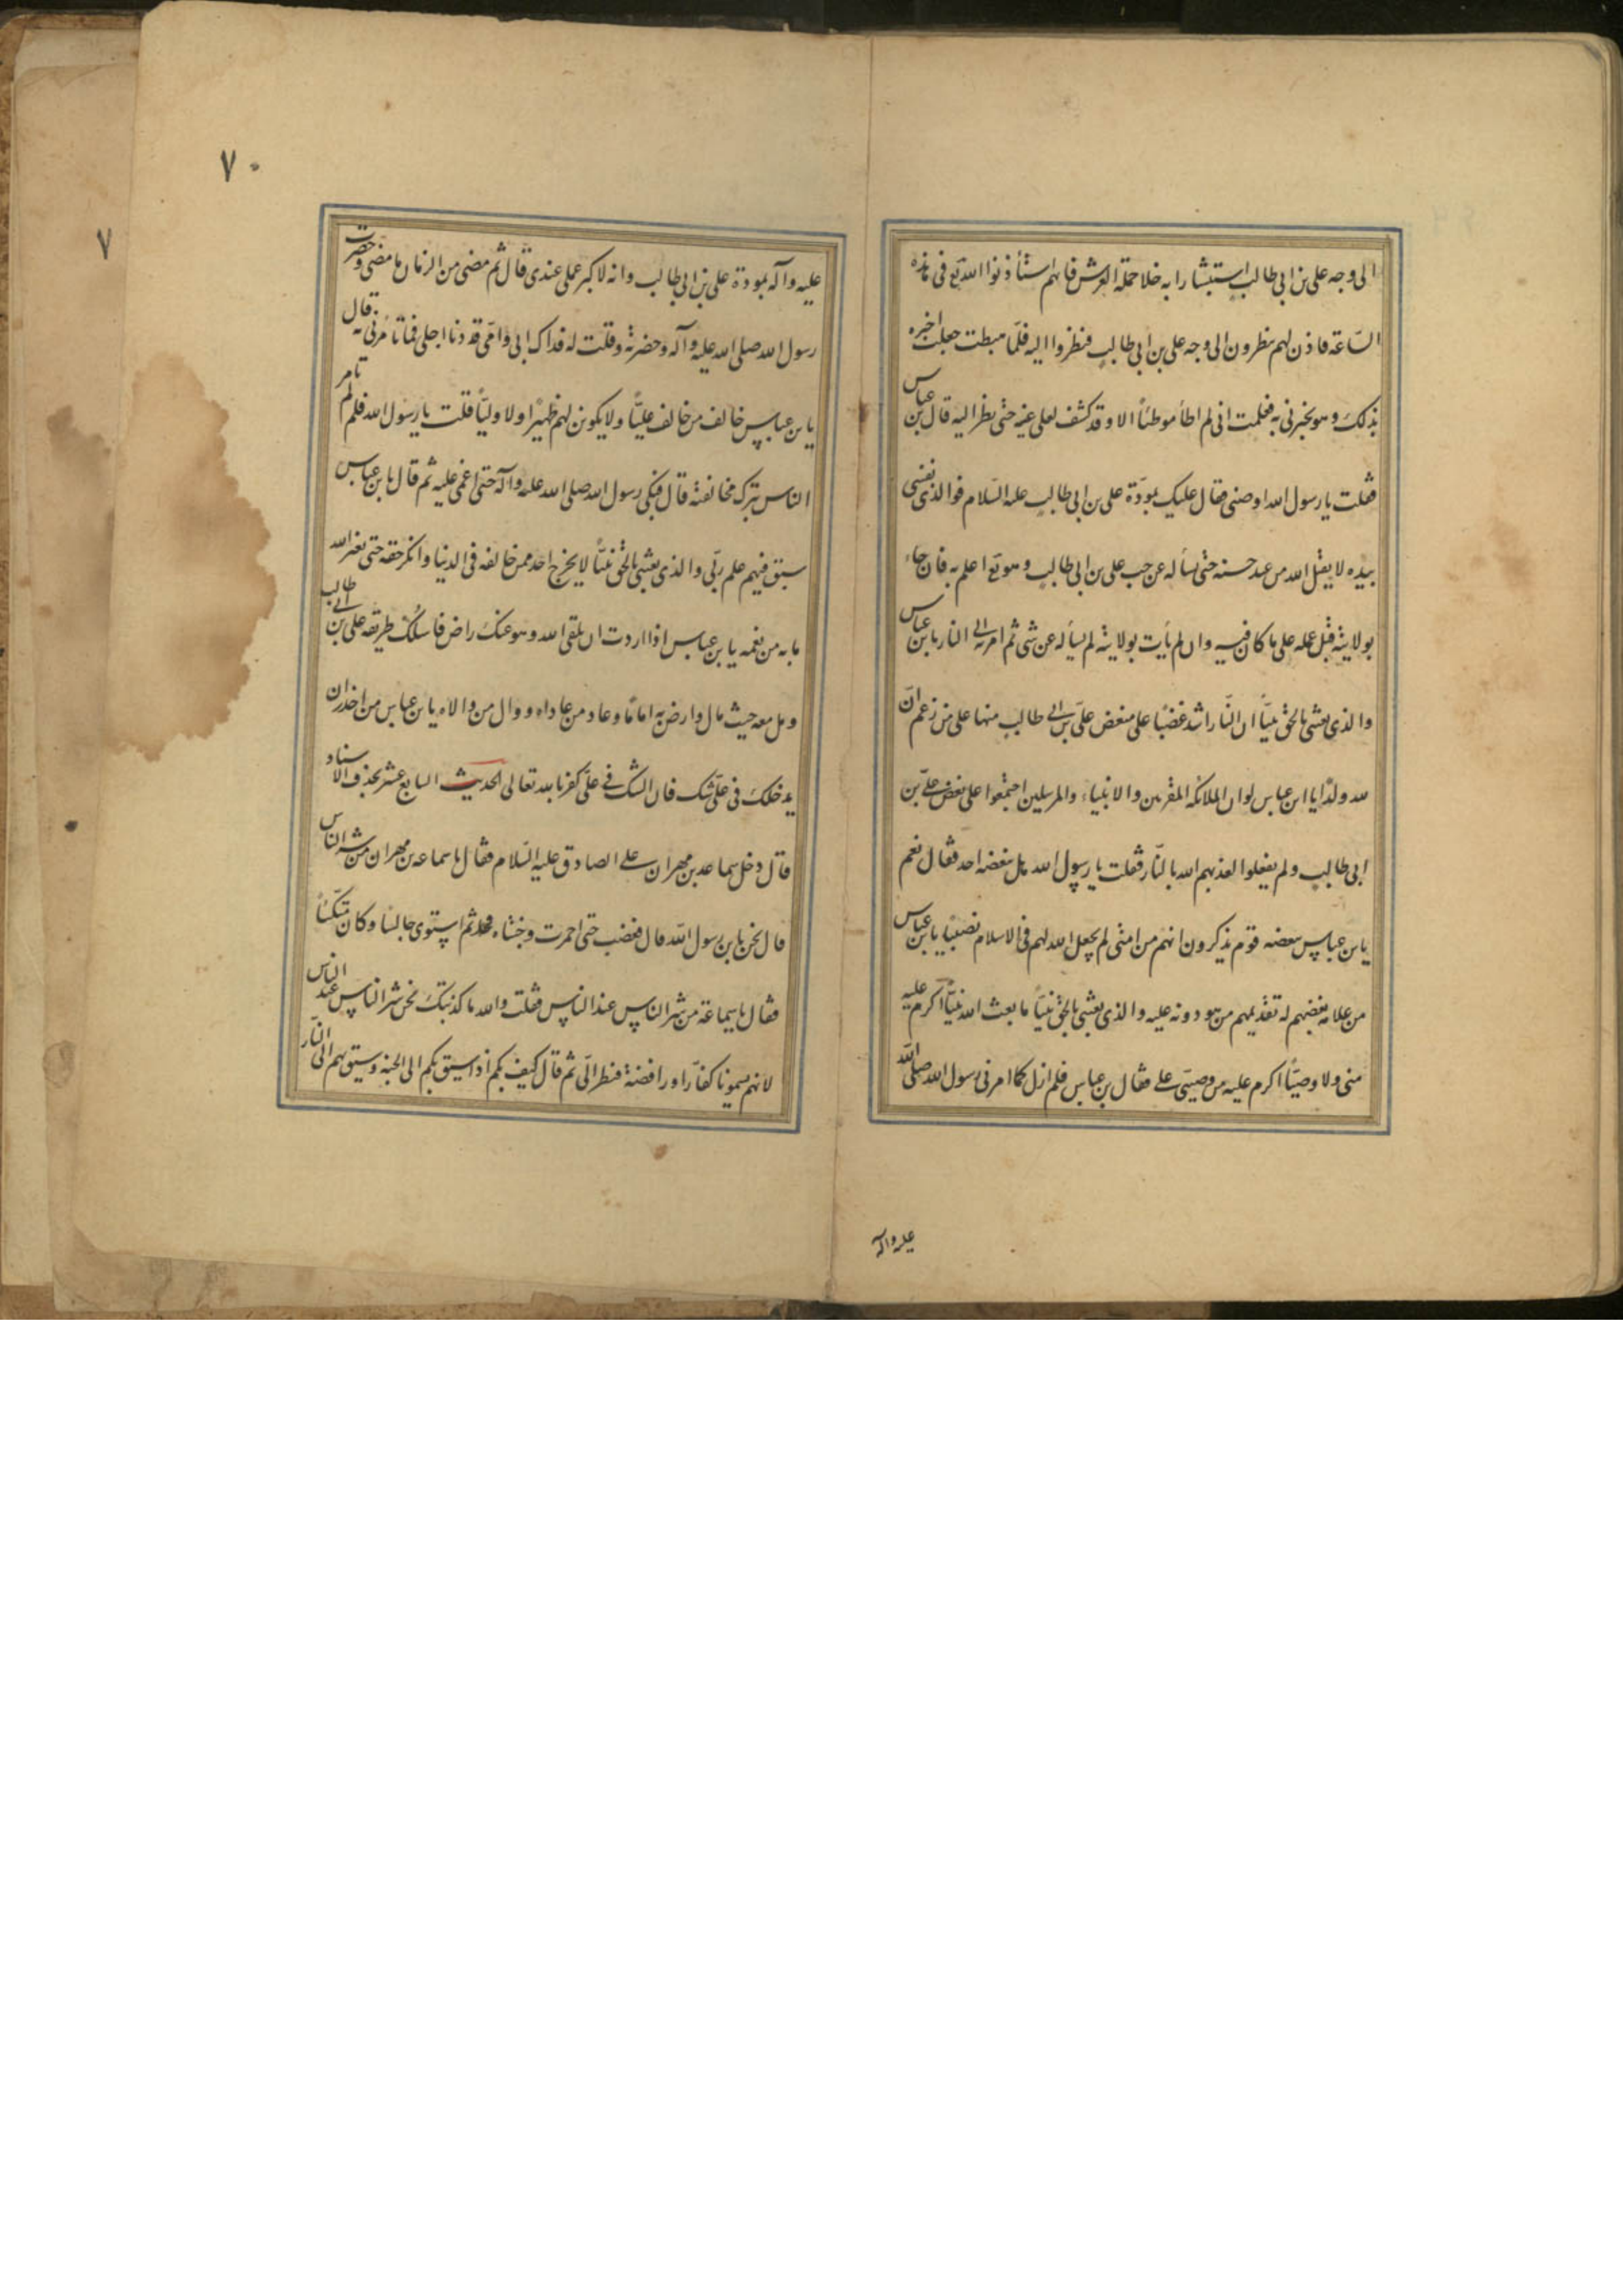 الی وجه علی بن ابی طالب استبشارا به خلا حملة العرش فانهم استأذنوا الله تع فی هذه
الساعه فاذن لهم ینظرون الی وجه علی بن ابی طالب فنظروا الیه فلما هبطت جعلت اخبره
بذلک وهو یخبرنی به فعلمت انی لم اطأ موطئاً الا وقد کشف لعلی عنه حتی نظر الیه قال بن عباس
فقلت یا رسول الله اوصنی فقال علیک بمودّة علی بن ابی طالب علیه السلام فوالذی نفسی
بیده لا یقبل الله من عبد حسنه حتی یسأله عن حب علی بن ابی طالب وهو تع اعلم به فان جاء
بولایته قبل عمله علی ما کان فیه وان لم یأت بولایته لم یسأله عن شی ثم امر به الی النار یابن عباس
والذی بعثنی بالحق نبیاً ان النّار اشد غضبًا علی مبغض علیّ بن ابی طالب منها علی من زعم انّ
لله ولدًا یا ابن عباس لو ان الملائکه المقربین والانبیاء والمرسلین اجتمعوا علی بغض علیّ بن
ابی طالب ولم یفعلوا لعذبهم الله بالنّار فقلت یا رسول الله هل یبغضه احد فقال نعم
یا بن عباس یبغضه قوم یذکرون انهم من امتی لم یجعل الله لهم فی الاسلام نصیبًا یا بن عباس
من علامه بغضهم له تفدیمهم من هو دونه علیه والذی بعثنی بالحق نبیّاً ما بعث الله نبیّاً اکرم علیه
منی ولا وصیّاً اکرم علیه من وصیّی علی فقال بن عباس فلم ازل کما امرنی رسول الله صلی الله
علیه وآله
۷۰
۷
علیه وآله بمودة علی بن ابی طالب وانه لاکبر عملی عندی قال ثم مضی من الزمان ما مضی وحضرت
رسول الله صلی الله علیه وآله وحضرته وقلت له فداک ابی وامّی قد دنا اجلی فما تأمرنی به قال
یا بن عباس خالف من خالف علیّاً ولا یکونن لهم ظهیرًا ولا ولیّاً قلت یا رسول الله فلم لم تامر
الناس بترک مخالفته قال فبکی رسول الله صلی الله علیه وآله حتی اغمی علیه ثم قال یا بن عباس
سبق فیهم علم ربّی والذی بعثنی بالحق نبیّاً لا یخرج احد ممن خالفه فی الدنیا وانکر حقه حتی یغیر الله
ما به من نعمه یا بن عباس اذا اردت ان تلقی الله وهو عنک راض فاسلک طریقه علی بن ابی طالب
ومل معه حیث مال وارض به امامًا وعاد من عاداه ووال من والاه یا بن عباس من احذر ان
یدخلک فی علیّ شک فان الشک فی علیّ کفر بالله تعالی الحدیث السابع عشر بحذف الاسناد
قال دخل سماعه بن مهران علی الصادق علیه السلام فقال یا سماعه بن مهران من شر الناس
قال نحن یا بن رسول الله قال فغضب حتی احمرت وجنتاه ثم استوی جالسًا وکان متکئاً
فقال یا سماعة من شر الناس عند الناس فقلت والله ما کذبتک نحن شر الناس عند الناس
لانهم سمونا کفّارا ورافضة فنظر الیّ ثم قال کیف بکم اذا سیق بکم الی الجنه وسیق بهم الی النّار